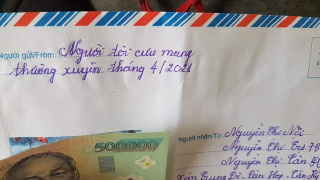 Người gửi/From: Người tôi cưu mang
thường xuyên tháng 4/2021
500000
Người nhận/To: Nguyễn Thị Nôi
Nguyễn Thị
Nguyễn Thị Cần
Xóm Cung Đì - Tân Hợp - Tân Kỳ